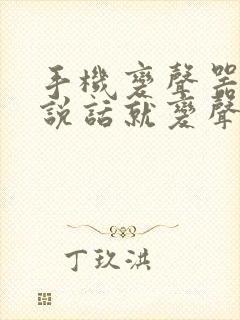 手機變聲器
說話就變聲
丁玖洪